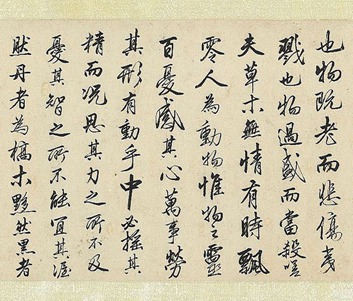 也物既老而悲傷夷
戮也物過盛而當殺嗟
夫草木無情有時飄
零人為動物惟物之靈
百憂感其心萬事勞
其形有動乎中必搖其
精而況思其力之所不及
憂其智之所不能宜其渥
然丹者為槁木黟然黑者